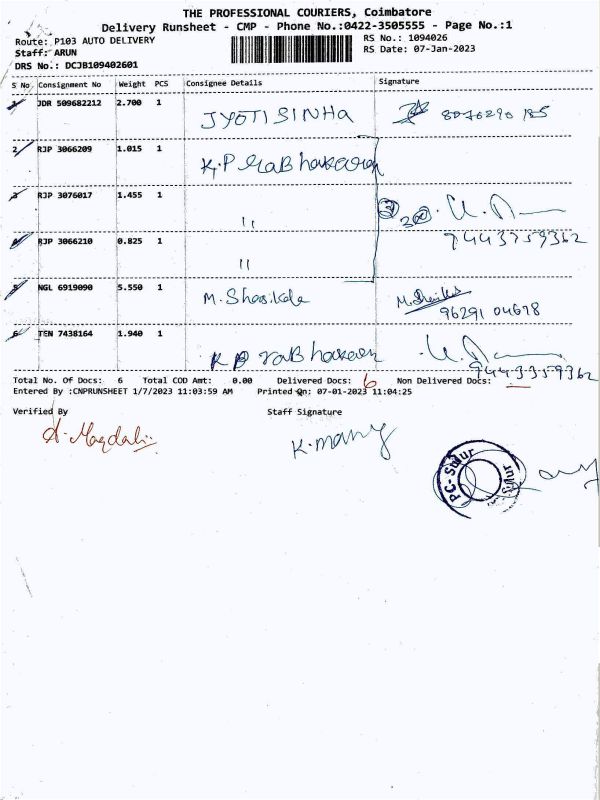 THE PROFESSIONAL COURIERS, Coimbatore
Delivery Runsheet - CMP - Phone No.:0422-3505555 - Page No.:1
Route: P103 AUTO DELIVERY
RS No.: 1094026
Staff: ARUN
RS Date: 07-Jan-2023
DRS No.: DCJB109402601
S No Consignment No Weight PCS Consignee Details Signature
1 JDR 509682212 2.700 1 JYOTI SINHA
2 RJP 3066209 1.015 1 K.Prabhakaran
3 RJP 3076017 1.455 1 "
4 RJP 3066210 0.825 1 "
9443759362
5 NGL 6919090 5.550 1 M.Shasikala
96291 04678
6 TEN 7438164 1.940 1 K Prabhakaran
9443359362
Total No. Of Docs: 6 Total COD Amt: 0.00 Delivered Docs: 6 Non Delivered Docs:
Entered By :CNPRUNSHEET 1/7/2023 11:03:59 AM Printed On: 07-01-2023 11:04:25
Verified By Staff Signature
K.many
PC-Sulur